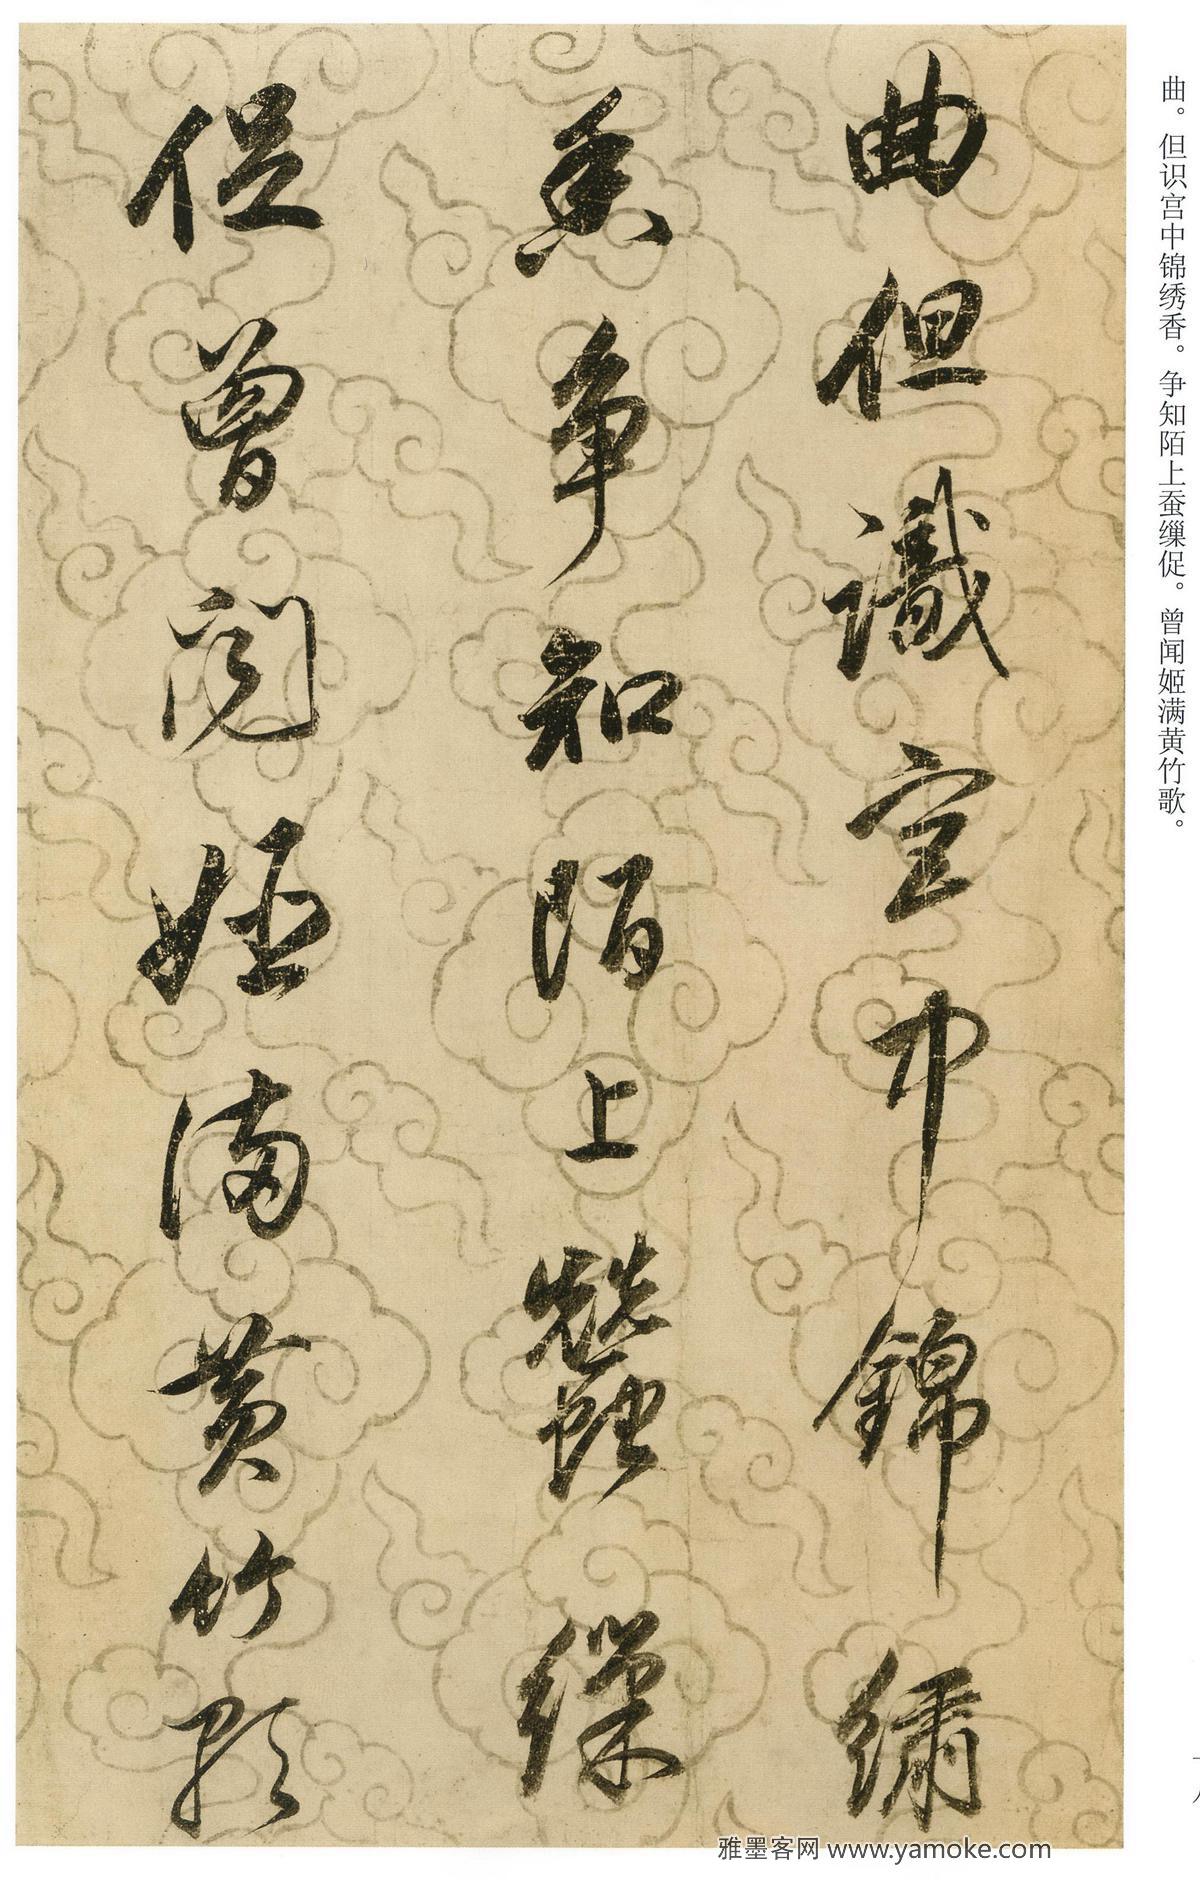 曲。但识宫中锦绣香。争知陌上蚕缫促。曾闻姬满黄竹歌。
曲但識宮中錦繡
香爭知陌上蠶繅
促曾聞姬滿黃竹歌
雅墨客网 www.yamoke.com